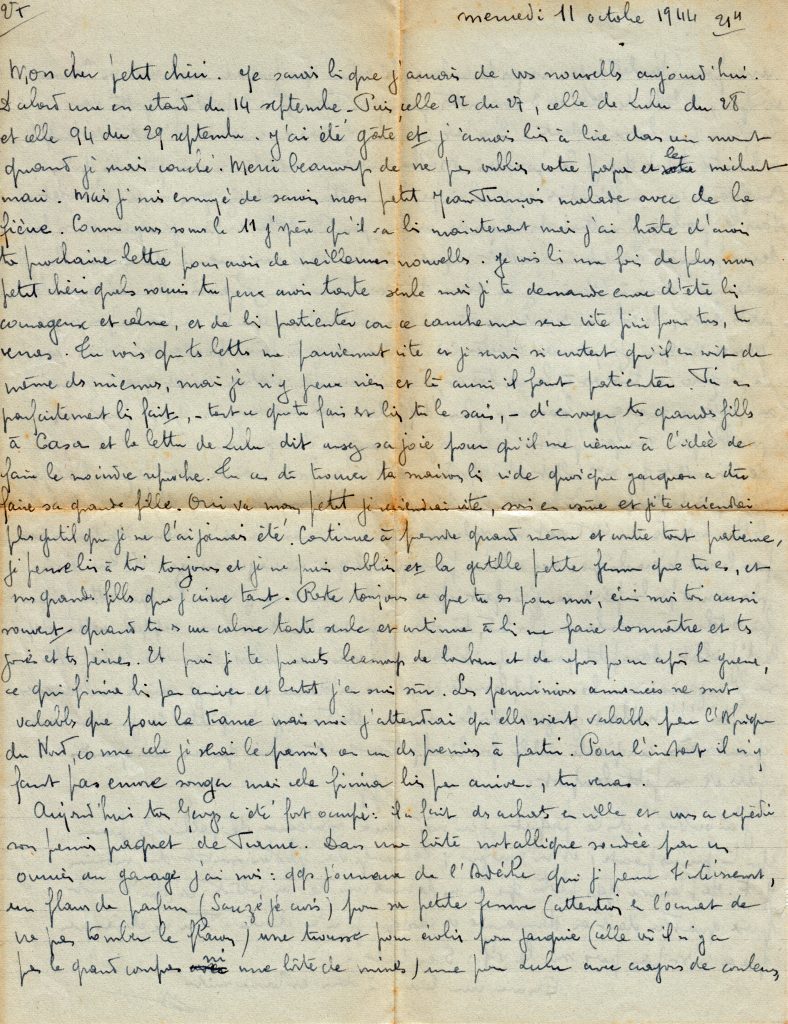 mercredi 11 octobre 1944 21H
Mon cher petit chéri. Je savais bien que j'aurais de vos nouvelles aujourd'hui.
D'abord une en retard du 14 septembre. Puis celle 92 du 27, celle de Lulu du 28
et celle 94 du 29 septembre. J'ai été gâté et j'aurais bien à lire dans un moment
quand je serai couché. Merci beaucoup de ne pas oublier votre papa et le méchant
mari. Mais je suis ennuyé de savoir mon petit Jean François malade avec de la
fièvre. Comme nous sommes le 11 j'espère qu'il va bien maintenant mais j'ai hâte d'avoir
ta prochaine lettre pour avoir de meilleures nouvelles. Je vois bien une fois de plus mon
petit chéri quels soucis tu peux avoir toute seule mais je te demande encore d'être bien
courageux et calme, et de bien patienter car ce cauchemar sera vite fini pour tous, tu
verras. Tu vois que tes lettres me parviennent vite et je serais si content qu'il en soit de
même des miennes, mais je n'y peux rien et là aussi il faut patienter. Tu as
parfaitement bien fait, - tout ce que tu fais est bien tu le sais, - d'envoyer tes grandes filles
à Casa et la lettre de Lulu dit assez sa joie pour qu'il me vienne à l'idée de
faire le moindre reproche. Tu as dû trouver ta maison bien vide quoique a dû
faire sa grande fille. Oui va mon petit je reviendrai vite, sois en sûre et je te reviendrai
plus gentil que je ne l'ai jamais été. Continue à prendre quand même et contre tout patience,
je pense bien à toi toujours et je ne puis oublier et la gentille petite femme que tu es, et
nos grandes filles que j'aime tant. Reste toujours ce que tu es pour moi, écris moi toi aussi
souvent quand tu es au calme toute seule et continue à bien me faire connaître et tes
joies et tes peines. Et puis je te promets beaucoup de bonheur et de repos pour après la guerre,
ce qui finira bien par arriver et bientôt j'en suis sûr. Les permissions annoncées ne sont
valables que pour la France mais moi j'attendrai qu'elles soient valables pour l'Afrique
du Nord, comme cela je serai le premier ou un des premiers à partir. Pour l'instant il n'y
faut pas encore songer mais cela finira bien par arriver, tu verras.
Aujourd'hui ton a été fort occupé: il a fait des achats en ville et vous a expédié
son premier paquet de France. Dans une boîte métallique soudée par un
ouvrier du garage j'ai mis: qqs journaux de l'Ardèche qui je pense t'intéresseront,
un flacon de parfum (Sauzé je crois) pour sa petite femme (attention en l'ouvrant de
ne pas tomber le flacon) une trousse pour écolier pour Jacquie (celle où il n'y a
pas le grand compas ni une boîte de mines) une pour Lulu avec crayons de couleurs,